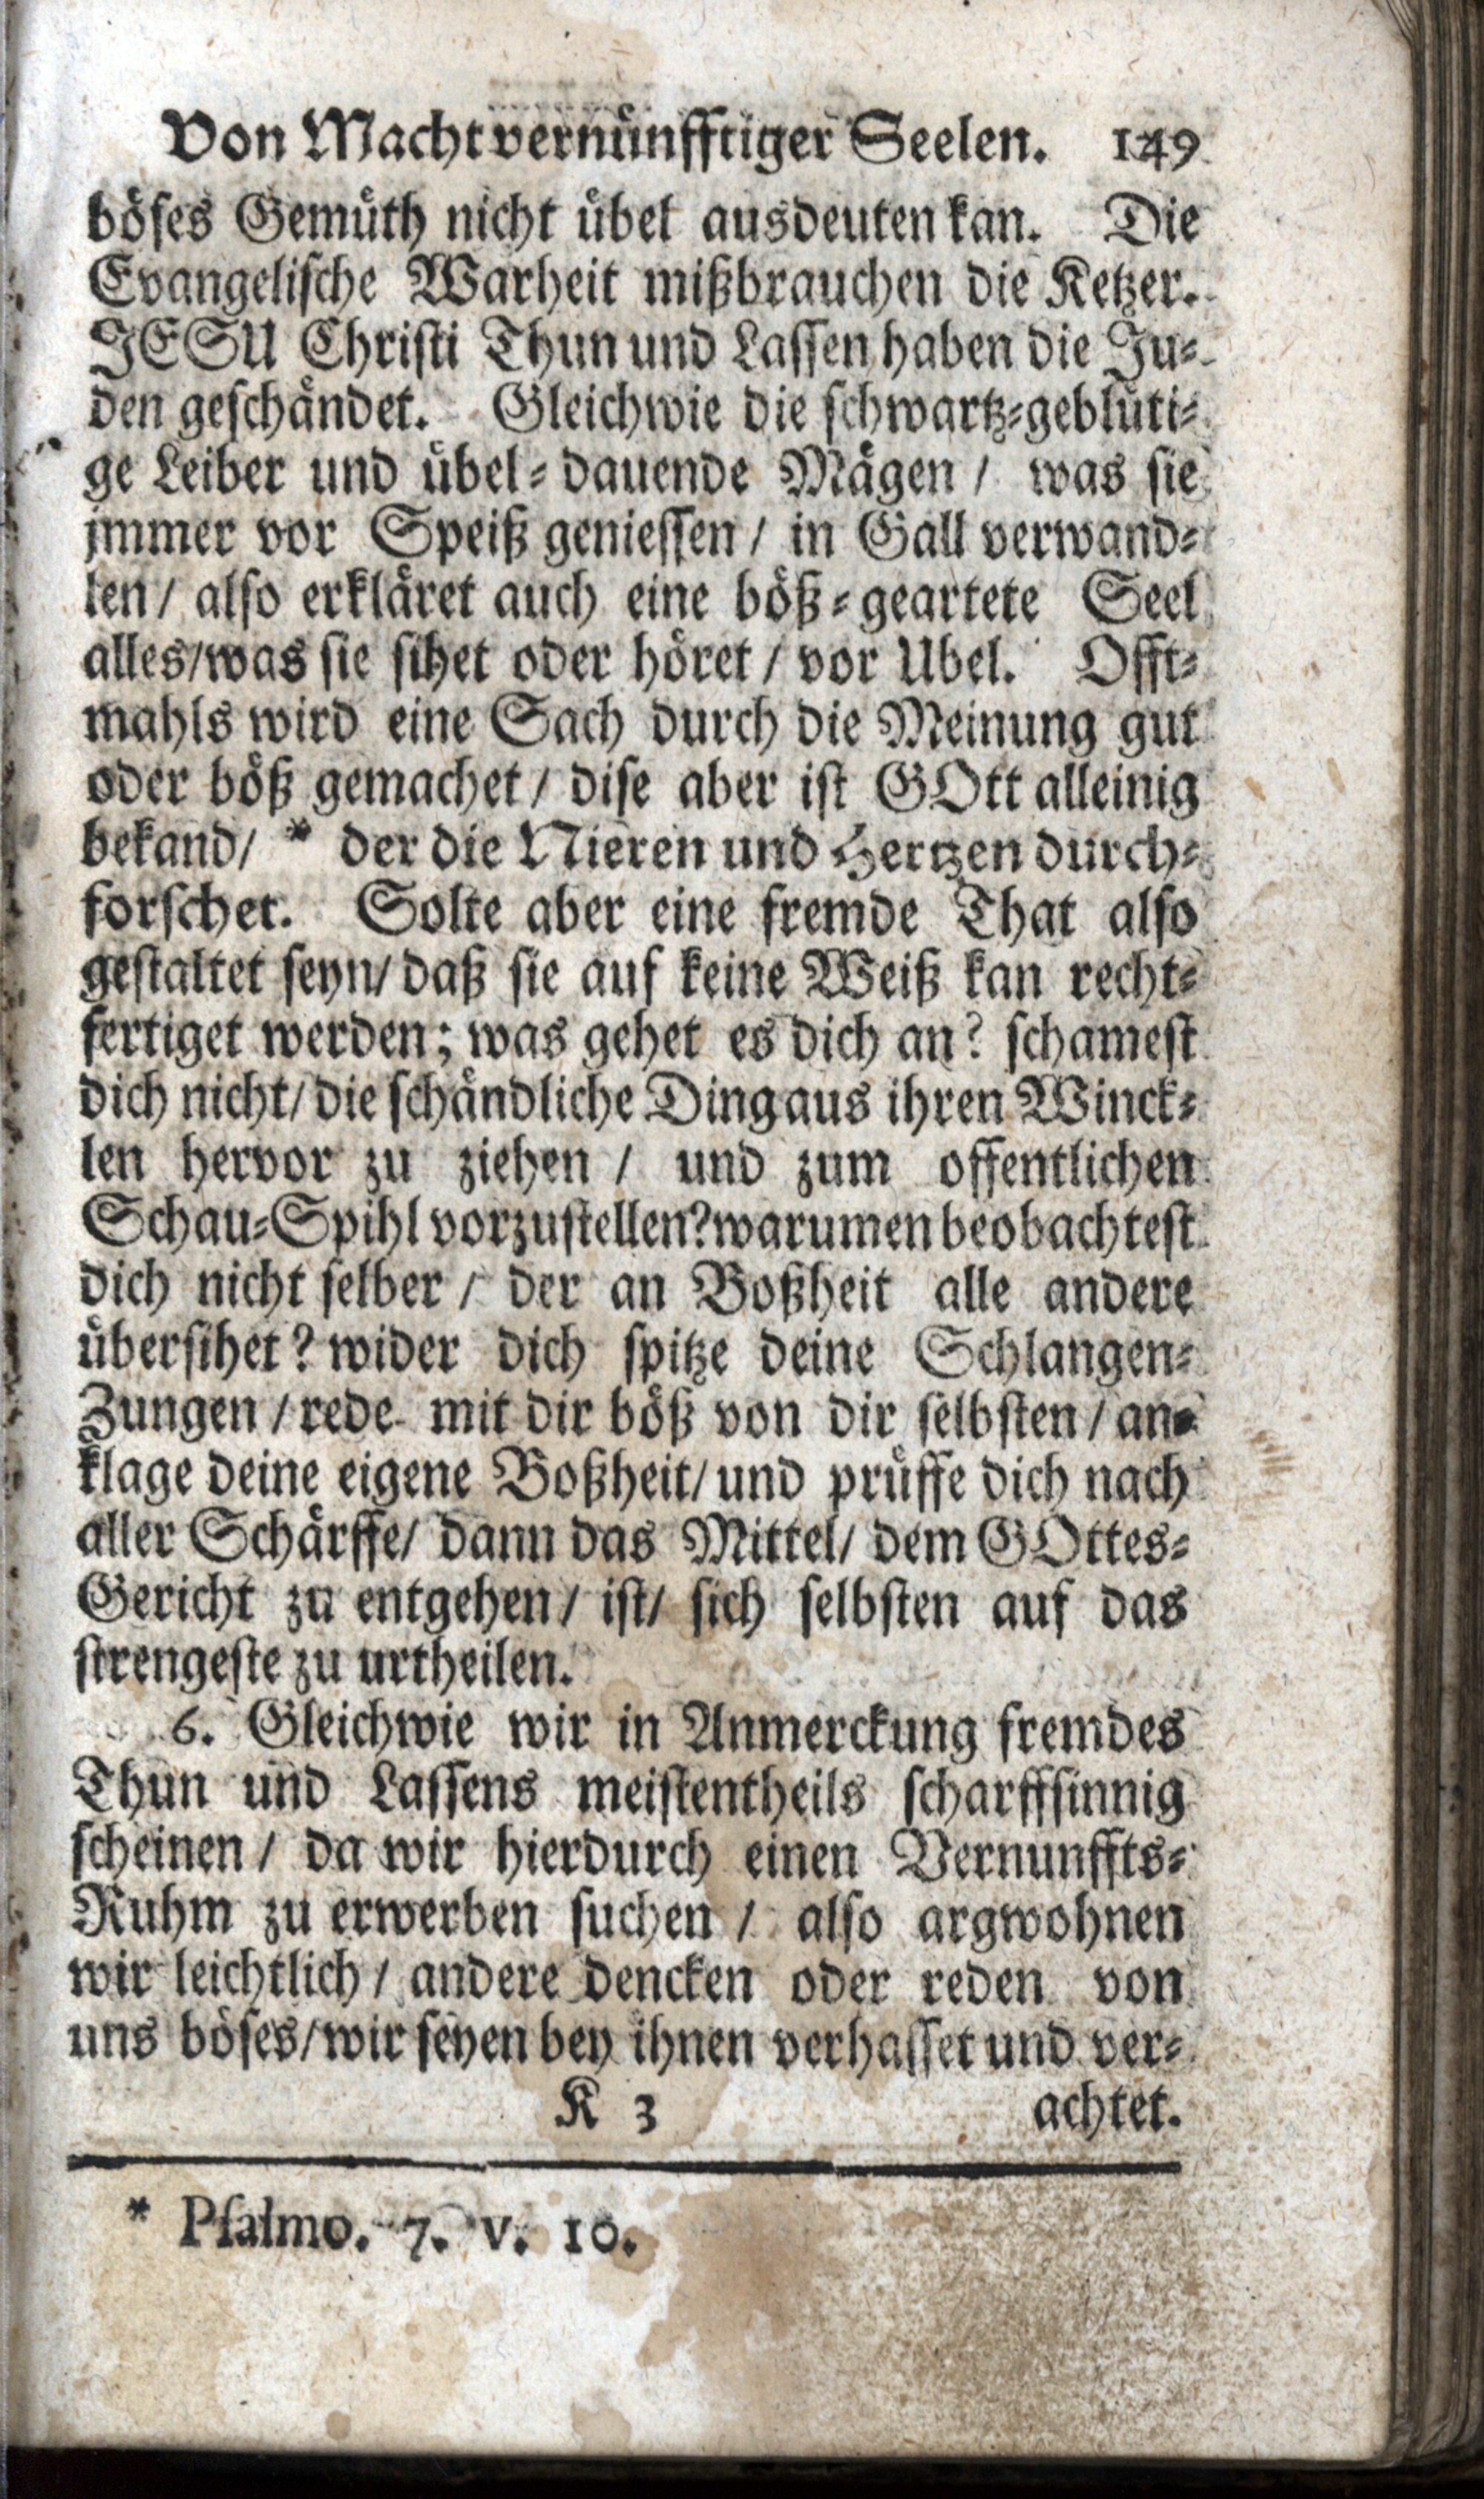 Von Macht vernünfftiger Seelen. 149
böses Gemüth nicht übel ausdeuten kan. Die
Evangelische Warheit mißbrauchen die Ketzer.
JESU Christi Thun und Lassen haben die Ju-
den geschändet. Gleichwie die schwartz-geblüti-
ge Leiber und übel-dauende Mägen / was sie
jmmer vor Speiß geniessen / in Gall verwand-
len / also erkläret auch eine böß-geartete Seel
alles/was sie sihet oder höret / vor Ubel. Offt-
mahls wird eine Sach durch die Meinung gut
oder böß gemachet / dise aber ist GOtt alleinig
bekand/ * der die Nieren und Hertzen durch-
forschet. Solte aber eine fremde That also
gestaltet seyn/ daß sie auf keine Weiß kan recht-
fertiget werden; was gehet es dich an? schamest
dich nicht/ die schändliche Ding aus ihren Winck-
len hervor zu ziehen / und zum offentlichen
Schau-Spihl vorzustellen?warumen beobachtest
dich nicht selber / der an Boßheit alle andere
übersihet? wider dich spitze deine Schlangen-
Zungen / rede mit dir böß von dir selbsten / an-
klage deine eigene Boßheit/ und prüffe dich nach
aller Schärffe/ dann das Mittel/ dem GOttes-
Gericht zu entgehen / ist/ sich selbsten auf das
strengeste zu urtheilen.
6. Gleichwie wir in Anmerckung fremdes
Thun und Lassens meistentheils scharffsinnig
scheinen / da wir hierdurch einen Vernunffts-
Ruhm zu erwerben suchen / also argwohnen
wir leichtlich / andere dencken oder reden von
uns böses/wir seyen bey ihnen verhasset und ver-
K 3 achtet.
* Psalmo. 7. v. 10.